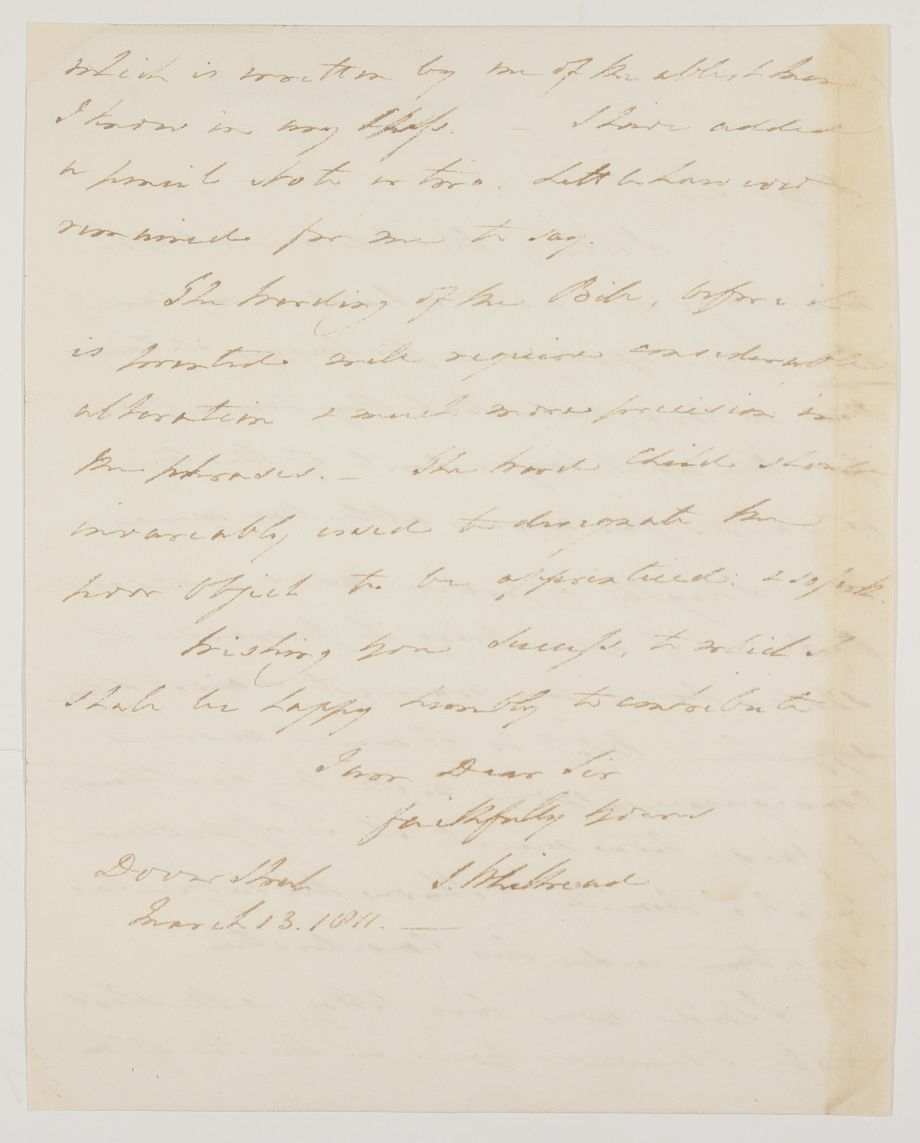 which is written by one of the ablest men
I know in any Shape. — I have added
a pencil Note or two. Little has
remained for me to say.
The wording of the Bill, before it
is printed will require considerable
alteration & much more precision in
the phrases. — The word Child should
invariably used to designate the
poor Object to be apprenticed:
Wishing you Success, to which I
shall be happy humbly to contribute
I am Dear Sir
faithfully yours
Dover Street S. Whitbread
March 13. 1811. —